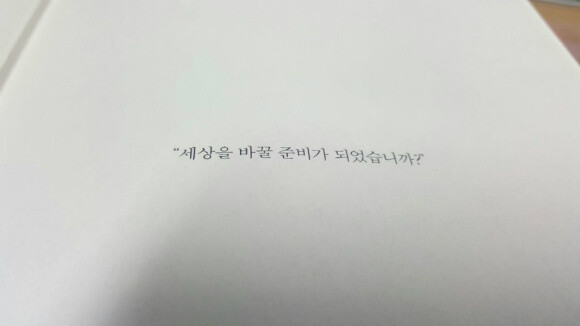 "세상을 바꿀 준비가 되었습니까?"